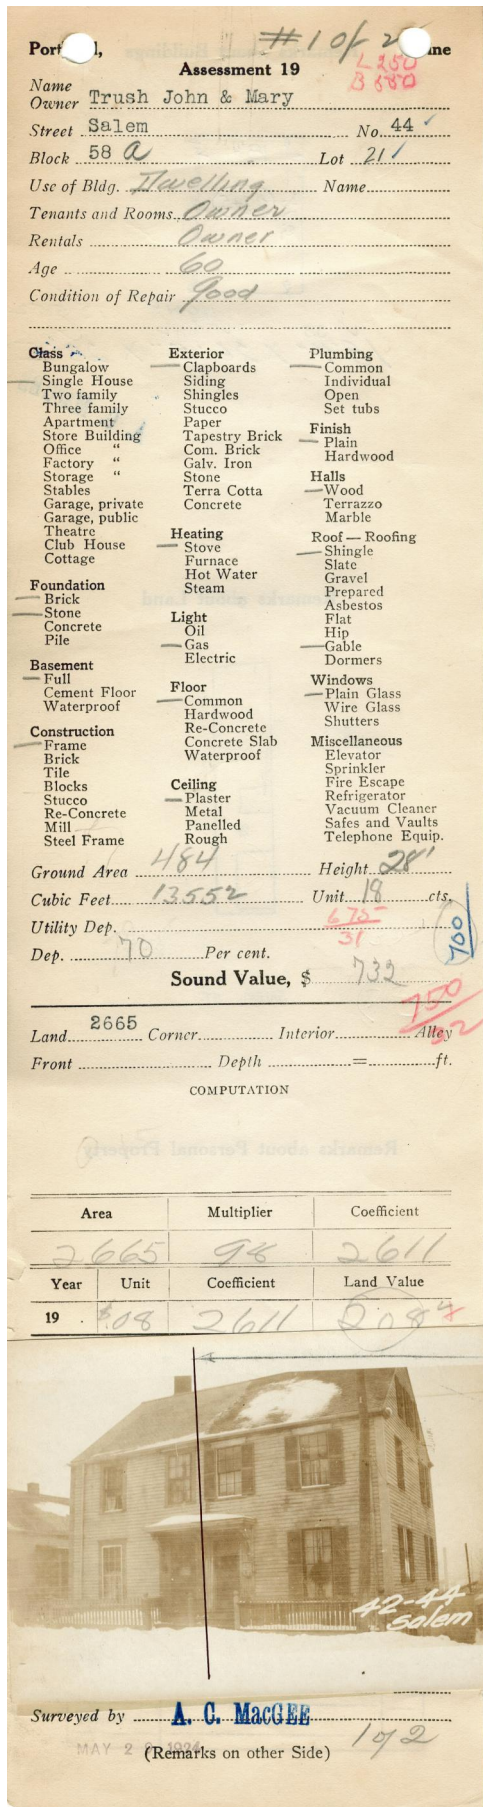 #1 of 2
Portland, Maine
L 250
Assessment 19
B 550
Name
Owner Trush John & Mary
Street Salem No. 44 ✓
Block 58 A Lot 21 ✓
Use of Bldg. Dwelling Name
Tenants and Rooms Owner
Rentals Owner
Age 60
Condition of Repair good
Class
Bungalow
Single House
Two family
Three family
Apartment
Store Building
Office "
Factory "
Storage "
Stables
Garage, private
Garage, public
Theatre
Club House
Cottage
Foundation
Brick
Stone
Concrete
Pile
Basement
Full
Cement Floor
Waterproof
Construction
Frame
Brick
Tile
Blocks
Stucco
Re-Concrete
Mill
Steel Frame
Exterior
Clapboards
Siding
Shingles
Stucco
Paper
Tapestry Brick
Com. Brick
Galv. Iron
Stone
Terra Cotta
Concrete
Heating
Stove
Furnace
Hot Water
Steam
Light
Oil
Gas
Electric
Floor
Common
Hardwood
Re-Concrete
Concrete Slab
Waterproof
Ceiling
Plaster
Metal
Panelled
Rough
Plumbing
Common
Individual
Open
Set tubs
Finish
Plain
Hardwood
Halls
Wood
Terrazzo
Marble
Roof — Roofing
Shingle
Slate
Gravel
Prepared
Asbestos
Flat
Hip
Gable
Dormers
Windows
Plain Glass
Wire Glass
Shutters
Miscellaneous
Elevator
Sprinkler
Fire Escape
Refrigerator
Vacuum Cleaner
Safes and Vaults
Telephone Equip.
Ground Area 484 Height 28'
Cubic Feet 13552 Unit 18 cts.
Utility Dep.
675
31
700
Dep. 70 Per cent.
Sound Value, $ 732
750
32
Land 2665 Corner Interior Alley
Front Depth = ft.
COMPUTATION
Area Multiplier Coefficient
2665 98 2611
Year Unit Coefficient Land Value
19 $08 2611 208
42-44
Salem
Surveyed by A. C. MacGEE
MAY 2 1924
(Remarks on other Side)
1 of 2